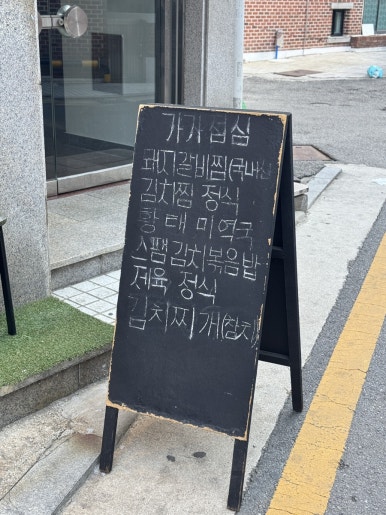 가가섬심
돼지갈비찜(국내산
김치찜 정식
황태미역국
스팸김치볶음밥
제육 정식
김치찌개(참치)